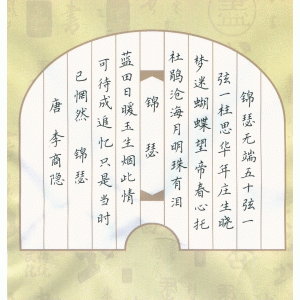 锦瑟无端五十弦一
弦一柱思华年庄生晓
梦迷蝴蝶望帝春心托
杜鹃沧海月明珠有泪
锦瑟
蓝田日暖玉生烟此情
可待成追忆只是当时
已惘然 锦瑟
唐 李商隐